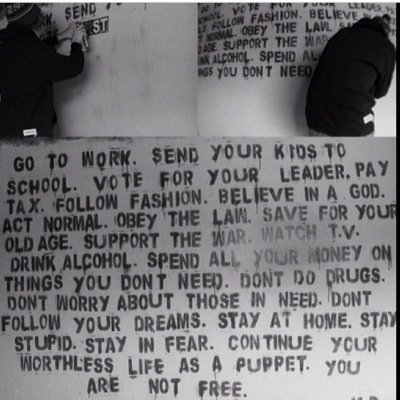 SEND
VOTE FOR YOUR LEADER,
FOLLOW FASHION. BELIEVE
NORMAL. OBEY THE LAW. SA
D AGE. SUPPORT THE WAR
INK ALCOHOL. SPEND AL
NGS YOU DONT NEED
GO TO WORK. SEND YOUR KIDS TO
SCHOOL. VOTE FOR YOUR LEADER, PAY
TAX. FOLLOW FASHION. BELIEVE IN A GOD.
ACT NORMAL. OBEY THE LAW. SAVE FOR YOUR
OLD AGE. SUPPORT THE WAR. WATCH T.V.
DRINK ALCOHOL. SPEND ALL YOUR MONEY ON
THINGS YOU DONT NEED. DONT DO DRUGS.
DONT WORRY ABOUT THOSE IN NEED. DONT
FOLLOW YOUR DREAMS. STAY AT HOME. STAY
STUPID. STAY IN FEAR. CONTINUE YOUR
WORTHLESS LIFE AS A PUPPET. YOU
ARE NOT FREE.